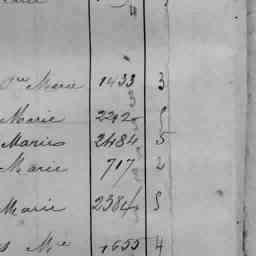 4
Marie 1433 3
3
Marie 2212 5
3
Marie 2484 5
3
Marie 717 2
3
Marie 2384 5
3
Mie 1655 4